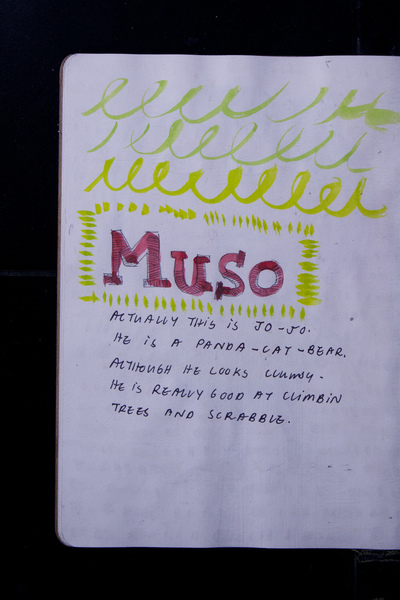 Muso
ACTUALLY THIS IS JO-JO.
HE IS A PANDA-CAT-BEAR.
ALTHOUGH HE LOOKS CLUMSY.
HE IS REALLY GOOD AT CLIMBIN
TREES AND SCRABBLE.